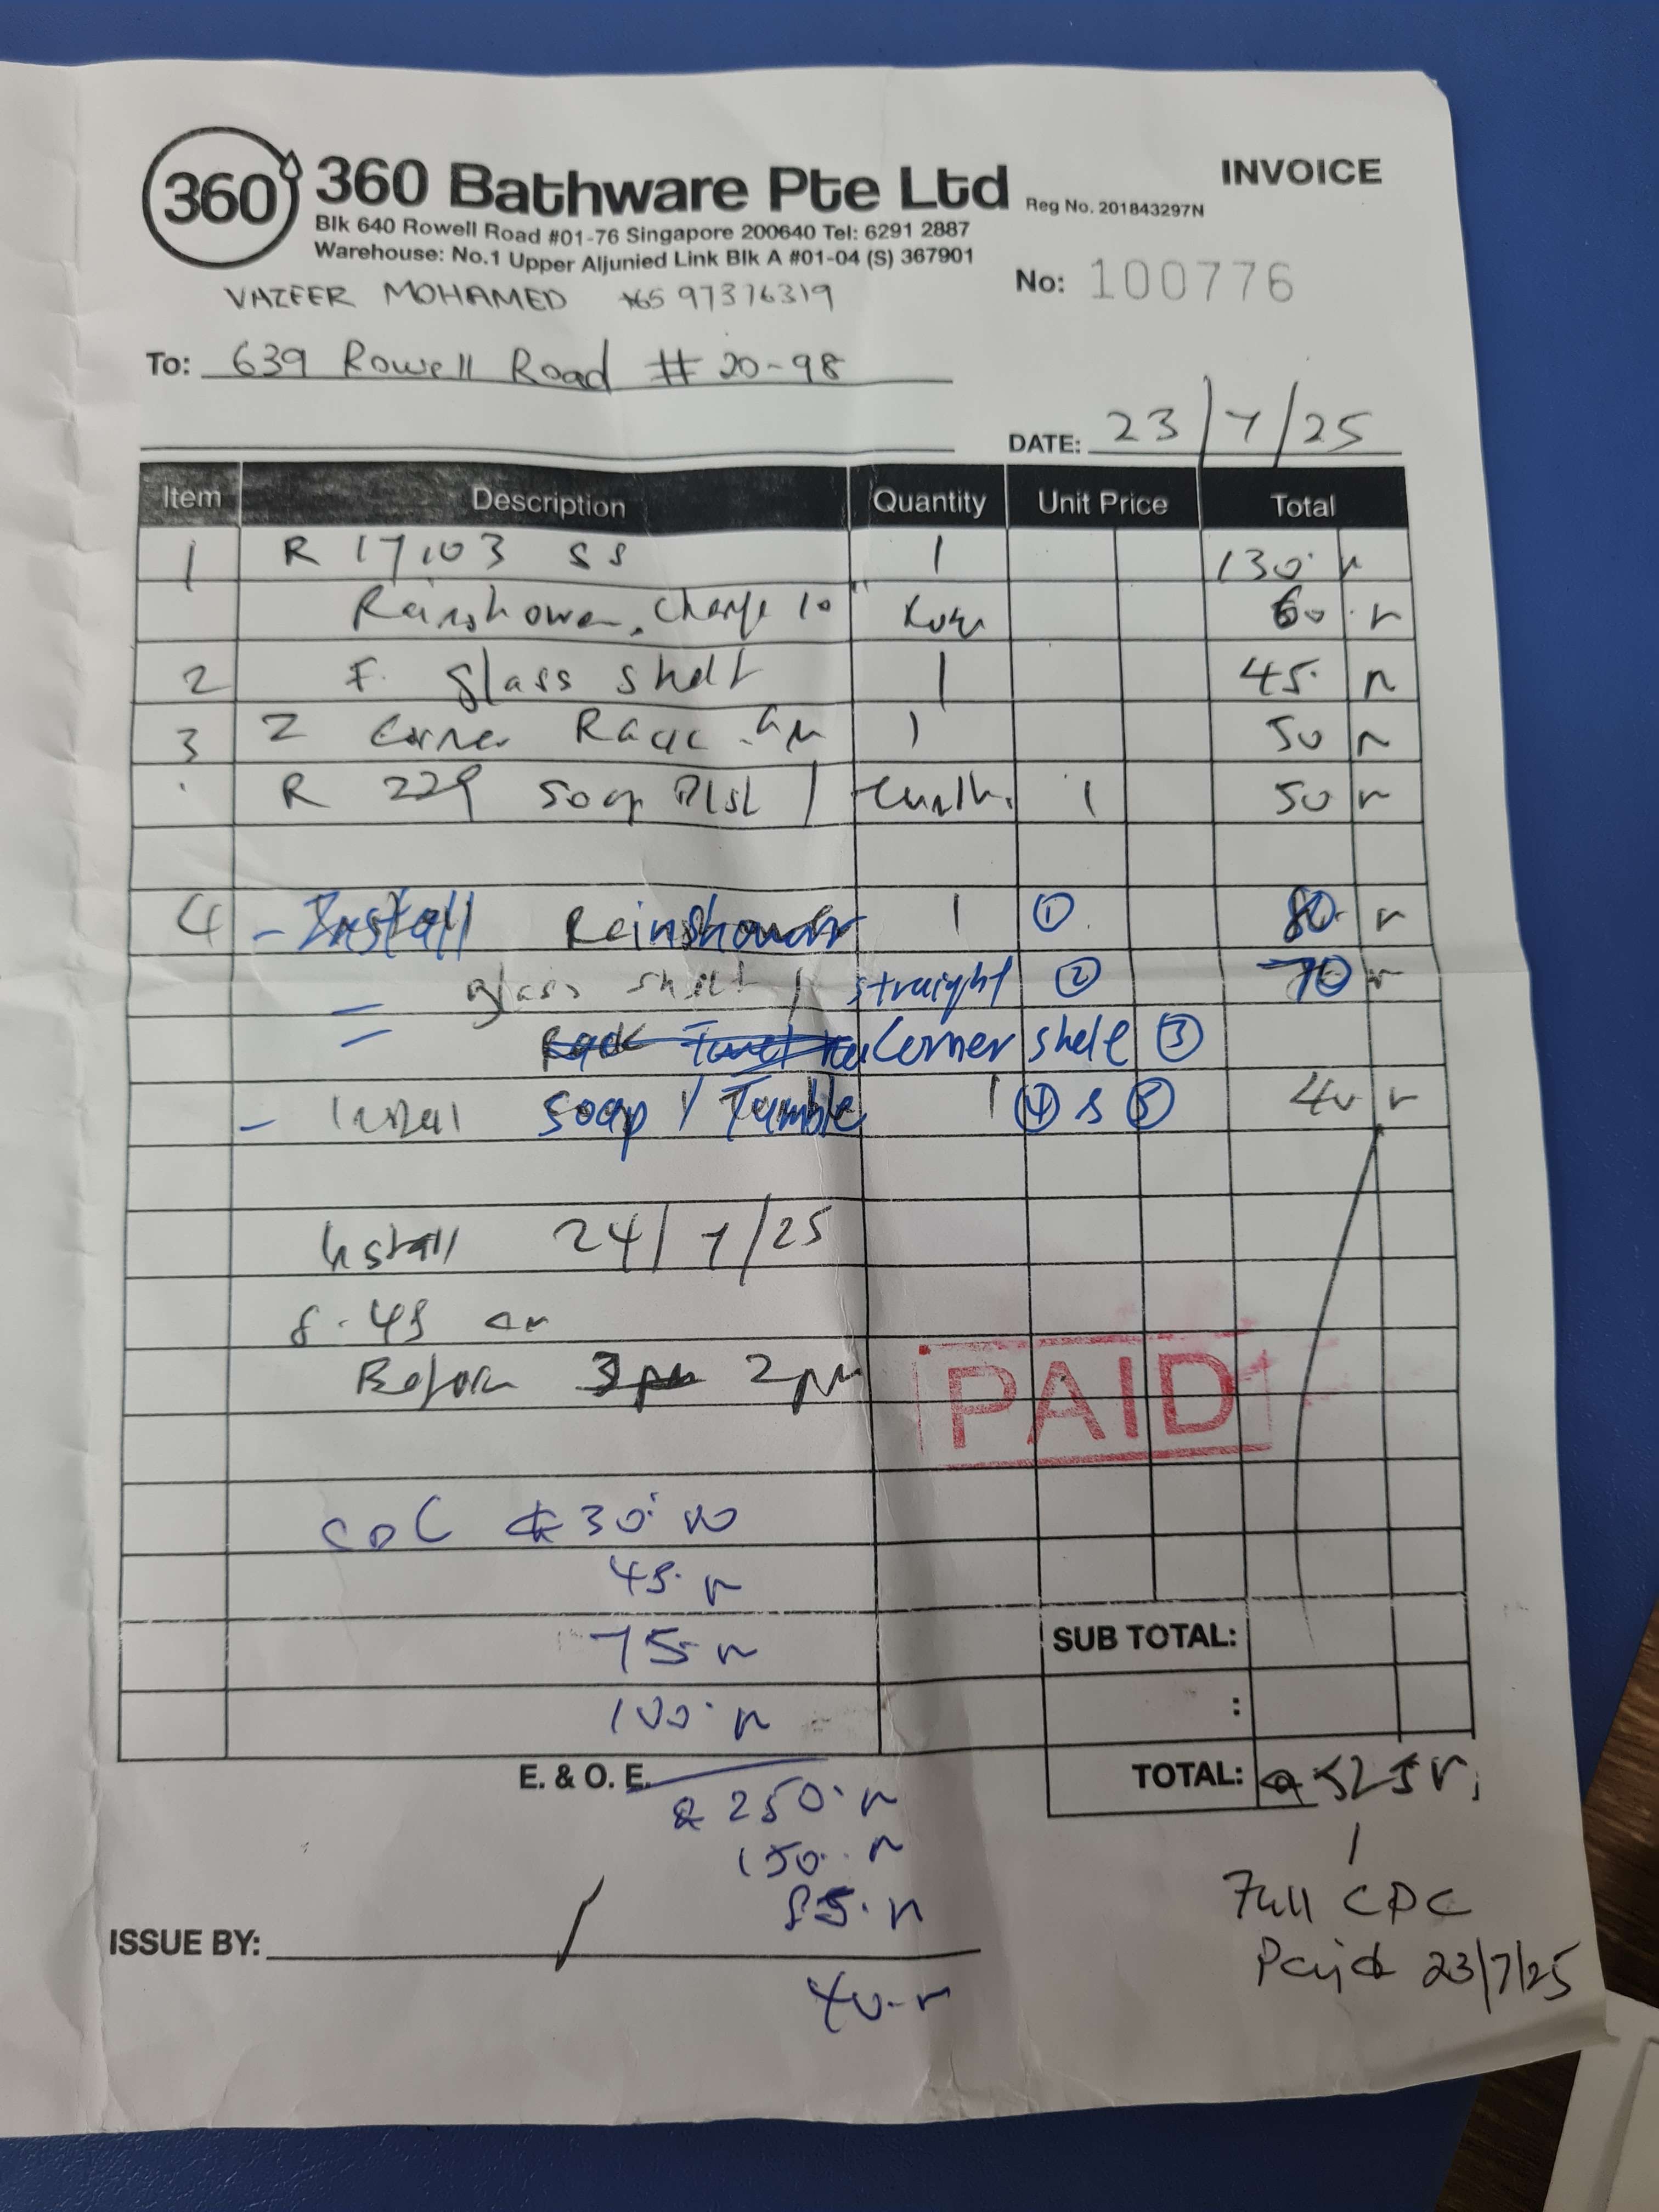 360
360 Bathware Pte Ltd Reg No. 201843297N
INVOICE
Blk 640 Rowell Road #01-76 Singapore 200640 Tel: 6291 2887
Warehouse: No.1 Upper Aljunied Link Blk A #01-04 (S) 367901
No: 100776
VAZEER MOHAMED +65 97376319
To: 639 Rowell Road # 20-98
DATE: 23/7/25
Item Description Quantity Unit Price Total
1 R 17103 SS 1 130.
Rainshower, Charge 10" 60.
2 F. glass shelf 1 45.
3 2 Corner 1 50
R 229 Soap Dish / 1 50
4 - Install Rainshower 1 ① 80.
= glass shelf / straight ② 70
= Corner shelf ③
- Install Soap / Tumble 1 ④ & ⑤ 40
Install 24/7/25
8.45 am
Before 3pm 2pm
PAID
CDC $30.00
45.
75.
SUB TOTAL:
100.
:
E. & O. E.
TOTAL: 525
250.
150.
85.
Full CDC
ISSUE BY:
Paid 23/7/25
40.